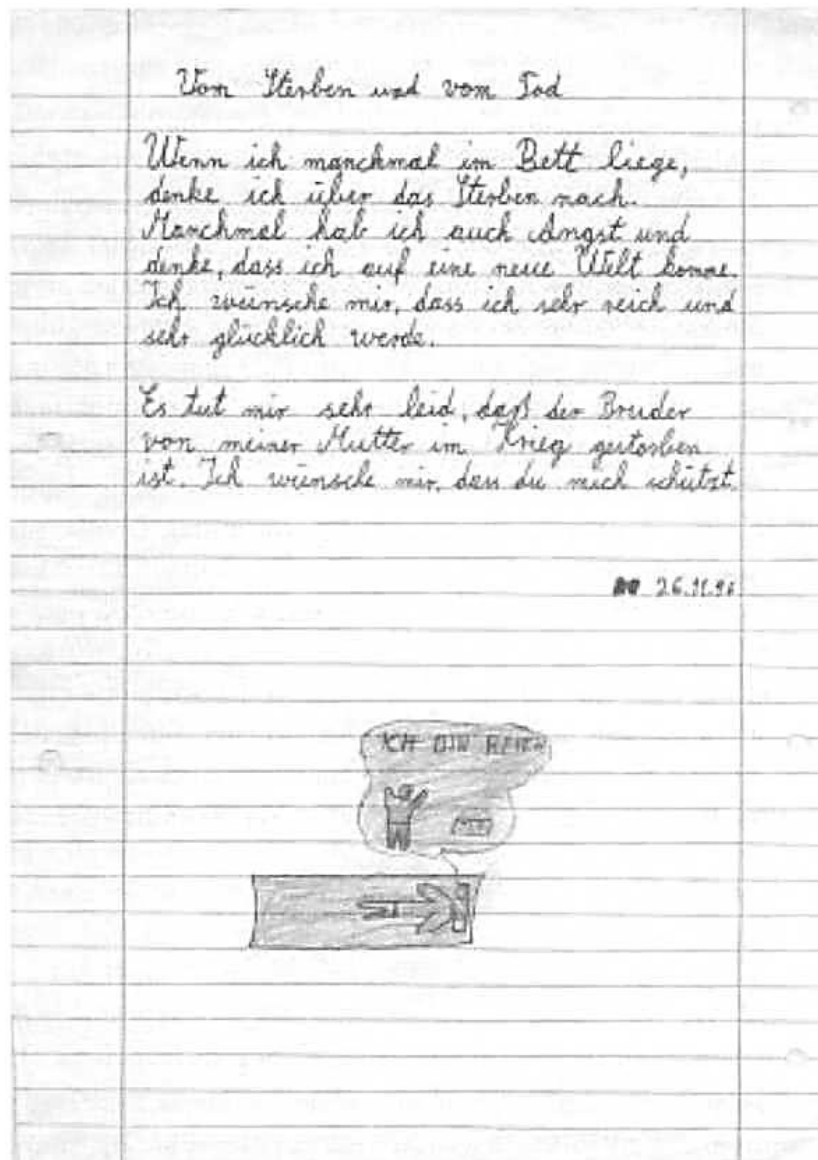 Vom Sterben und vom Tod
Wenn ich manchmal im Bett liege,
denke ich über das Sterben nach.
Manchmal hab ich auch Angst und
denke, dass ich auf eine neue Welt komme.
Ich wünsche mir, dass ich sehr reich und
sehr glücklich werde.
Es tut mir sehr leid, daß der Bruder
von meiner Mutter im Krieg gestorben
ist. Ich wünsche mir, dass du mich schützt.
26.11.96
ICH BIN REICH